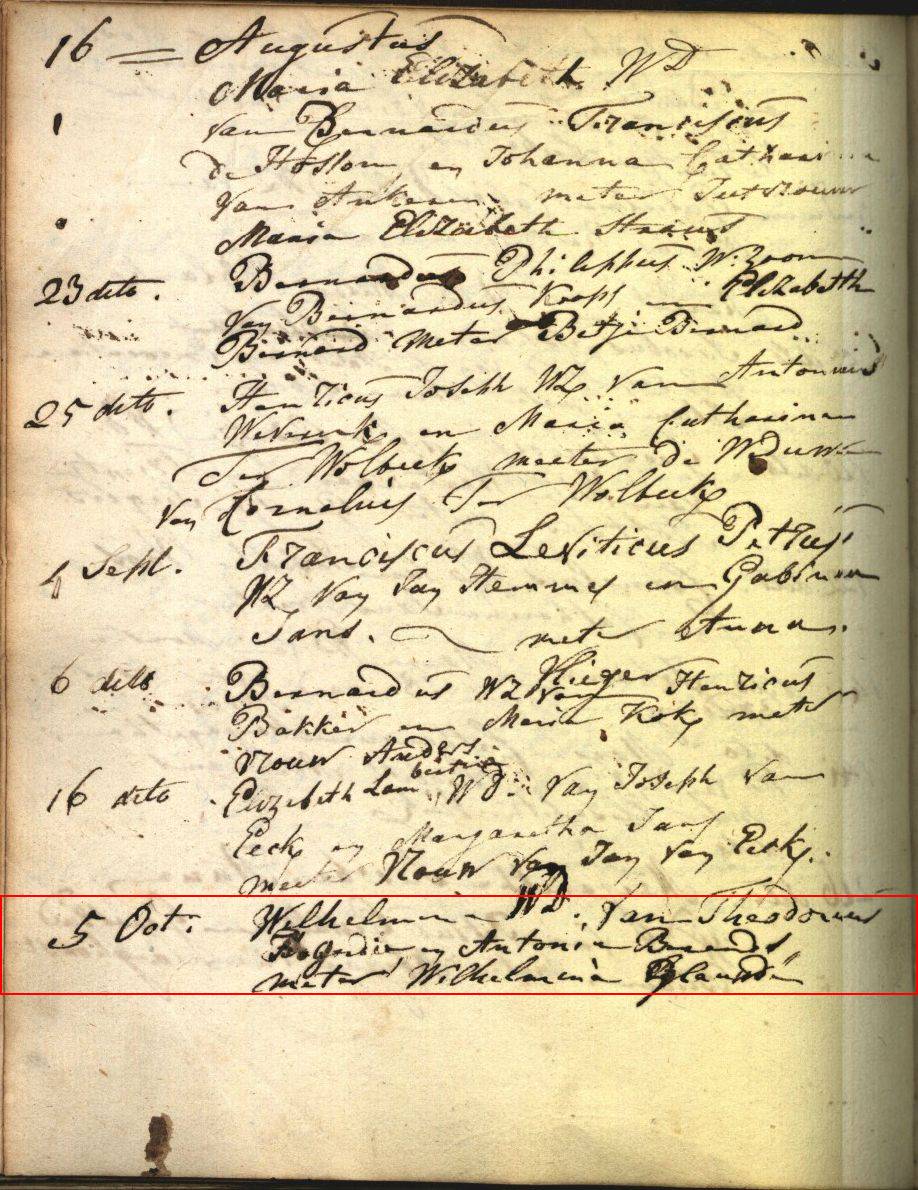 16 = Augustus
Maria Elizabeth WD
van Bernardus Franciscus
de Hosson en Johanna Catharina
van Ankeren meter Juffrouw
Maria Elizabeth Strauts
23 dito. Bernardus Philippus W: Zoon
van Bernardus Kraps en Elizabeth
Bernard meter Betje Bernard
25 dito. Henricus Joseph WZ van Antonius
en Maria Catharina
Ter Wolbeek meeter de Weduwe
van Cornelius Ter Wolbeek
4 Sept. Franciscus Leviticus Petrus
WZ van Jan Hemmes en Gabina
Jans. meter Anna.
6 dito Bernardus WZ van Henricus
Vlieger
Bakker en Maria Kok meter
Vrouw Anders
16 dito Elizabeth Lambertina WD: van Joseph van
Eeck en Margaretha Jans
meeter Vrouw van Jan van Eeck.
5 Oct: Wilhelmina WD: van Theodorus
en Antonia Barends
meter Wilhelmina